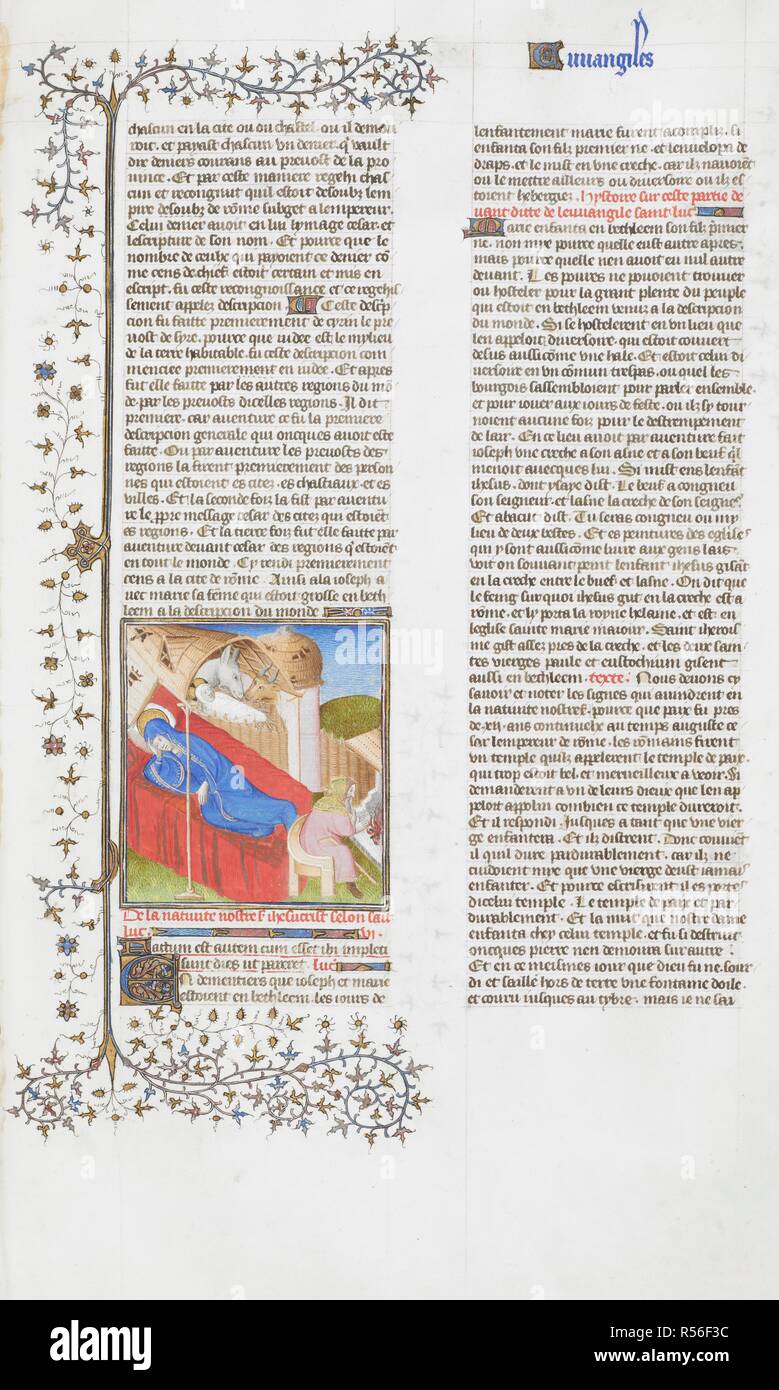 Euuangiles
chascun en la cite ou ou chastel ou il demou
roit. et paiast chascun vn denier. qͥ vault
dix deniers courans au preuost de la pro
uince. Et par ceste maniere regehi chas
cun et recongnut quil estoit desoubz lem
pire desoubz de rōme subget a lempereur.
Celui denier auoit en lui lymage cesar. et
lescripture de son nom. Et pource que le
nombre de ceulx qui payoient ce denier cō
me cens de chief estoit certain et mis en
escript. fu ceste recongnoissance et ce regehis
sement appelez descripcion. Ceste descp̄
cion fu faitte premierement de cyrin le pre
uost de syre. pource que iudee est le mylieu
de la terre habitable. fu ceste descripcion com
menciee premierement en iudee. Et apres
fut elle faitte par les autres regions du mō
de. par les preuosts dicelles regions. Il dit
premiere. car auenture ce fu la premiere
descripcion generale qui oncques auoit este
faitte. Ou par auenture les preuosts des
regions la firent premierement des person
nes qui estoient es citez. es chastiaux. et es
villes. Et la seconde foiz la fist par auentu
re le ppre message cesar des citez qui estoiēt
es regions. Et la tierce foiz fut elle faitte par
auenture deuant cesar des regions qͥ estoiēt
en tout le monde. Cy rendi premierement
cens a la cite de rōme. Ainsi ala ioseph a
uec marie sa fēme qui estoit grosse en beth
leem a la descripcion du monde
De la natiuite nostrē ihesucrist selon saīt
luc. vi.
Factum est autem cum essēt ibi impleti
sunt dies ut pareret. luc
En dementiers que ioseph et marie
estoient en bethleem. les iours de
lenfantement marie furent acomplix. si
enfanta son filz premier ne. et lenuelopa de
draps. et le mist en vne creche. car ilz nauoiēt
ou le mettre ailleurs ou diuersoire ou ilz es
toient hebergiez. hystoire sur ceste partie de
uant ditte de leuuangile saint luc
Marie enfanta en bethleem son filz pͥmier
ne. non mye pource quelle eust autre apres.
mais pource quelle nen auoit eu nul autre
deuant. Les poures ne pouoient trouuer
ou hosteler pour la grant plente du peuple
qui estoit en bethleem venuz a la descripcion
du monde. Si se hostelerent en vn lieu que
len appeloit diuersoire. qui estoit couuert
desus aussicōme vne hale. Et estoit celui di
uersoire en vn cōmun trespas. ou quel les
bourgois sassembloient pour parler ensemble.
et pour iouer aux iours de feste. ou ilz sy tour
noient aucune foiz pour le destrempement
de lair. En ce lieu auoit par auenture fait
ioseph vne creche a son asne et a son beuf qͥl
menoit auecques lui. Si mist ens lenfāt
ihesus. dont ysaye dist. Le beuf a congneu
son seigneur. et lasne la creche de son seigneͬ.
Et abacut dist. Tu seras congneu ou my
lieu de deux bestes. Et es peintures des eglises
qui y sont aussicōme liure aux gens lais
voit on souuant peint lenfant ihesus gisāt
en la creche entre le buef et lasne. On dit que
le feing sur quoi ihesus gut en la creche est a
rōme. et ly porta la royne helaine. et est en
leglise sainte marie maiour. Saint iherois
me gist assez pres de la creche. et les deux sain
tes vierges paule et eustochium gisent
aussi en bethleem. texte. Nous deuons cy
sauoir et noter les signes qui auindrent en
la natiuite nostreẜ. pource que paix fu pres
de .xii. ans continuelx au temps auguste ce
sar lempereur de rōme. les rōmains firent
vn temple quilz appelerent le temple de paix.
qui trop estoit bel. et merueilleux a veoir. Si
demanderēt a vn de leurs dieux que len ap
peloit appolin combien ce temple dureroit.
Et il respondi. Jusques a tant que vne vier
ge enfantera. Et ilz distrent. Donc conuiēt
il quil dure pardurablement. car ilz ne
cuidoient mye que vne vierge deust iamais
enfanter. Et pource escrisirent il es portes
dicelui temple. Le temple de paix et par
durablement. Et la nuit que nostre dame
enfanta chey celui temple. et fu si destruit
oncques pierre nen demoura sur autre.
Et en ce meismes iour que dieu fu ne. sour
di et sailli hors de terre vne fontaine doile.
et couru iusques au tybre. mais ie ne sai
alamy
Image ID: R56F3C
www.alamy.com